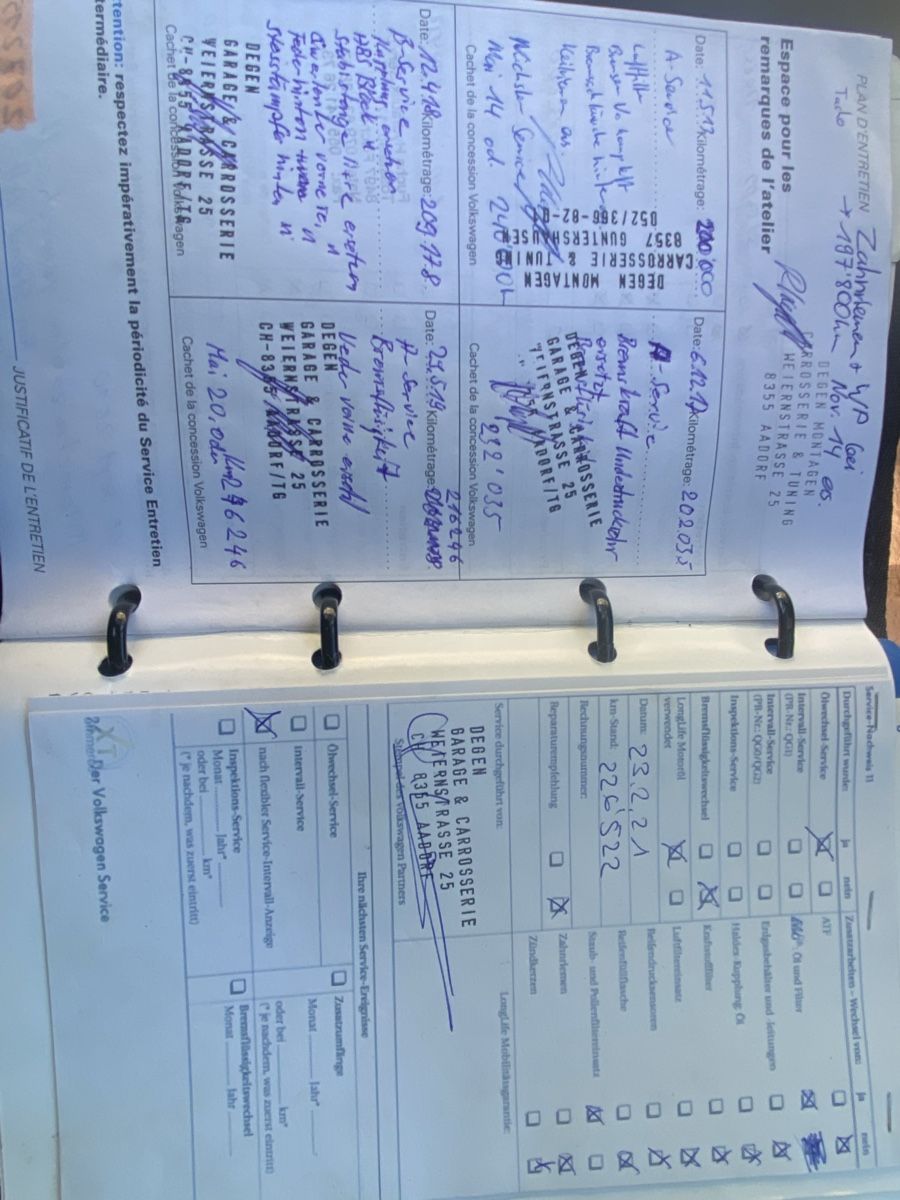 PLAN D'ENTRETIEN
Zahnriemen + WP bei
Tacho → 187'800km Nov. 14 es.
Espace pour les
remarques de l'atelier
DEGEN MONTAGEN
CARROSSERIE & TUNING
WEIERNSTRASSE 25
8355 AADORF
Date: 11.5.17 Kilométrage: 200'000
A-Service
Luftfilter
Nächster Service
Mai 14 od. 240'000k
DEGEN MONTAGEN
CARROSSERIE & TUNING
8357 GUNTERSHAUSEN
052/366-82-
Cachet de la concession Volkswagen
Date: 6.12.17 Kilométrage: 202035
A-Service
ersetzt
DEGEN
GARAGE & CARROSSERIE
WEIERNSTRASSE 25
AADORF/TG
232'035
Cachet de la concession Volkswagen
Date: 12.4.18 Kilométrage: 209.178
B-Service
DEGEN
GARAGE & CARROSSERIE
WEIERNSTRASSE 25
CH-8355 AADORF/TG
Cachet de la concession Volkswagen
216246
Date: 29.5.19 Kilométrage:
A-Service
Bremsflüssigkeit
Feder vorne ersetzt
DEGEN
GARAGE & CARROSSERIE
WEIERNSTRASSE 25
CH-8355 AADORF/TG
Mai 20, oder Km 246246
Cachet de la concession Volkswagen
Attention: respectez impérativement la périodicité du Service Entretien
intermédiaire.
JUSTIFICATIF DE L'ENTRETIEN
Service-Nachweis 11
Durchgeführt wurde: ja nein
Ölwechsel-Service
Intervall-Service
(PR-Nr.: QG1)
Intervall-Service
(PR-Nr.: QG0/QG2)
Inspektions-Service
Bremsflüssigkeitswechsel
LongLife Motoröl
verwendet
Datum: 23.2.21
km-Stand: 226'522
Rechnungsnummer:
Reparaturempfehlung
Zusatzarbeiten – Wechsel von: ja nein
ATF
Öl und Filter
Erdgasbehälter und -leitungen
Haldex-Kupplung: Öl
Kraftstofffilter
Luftfiltereinsatz
Reifendrucksensoren
Reifenfüllflasche
Staub- und Pollenfiltereinsatz
Zahnriemen
Zündkerzen
Service durchgeführt von:
DEGEN
GARAGE & CARROSSERIE
WEIERNSTRASSE 25
CH 8355 AADORF
Stempel des Volkswagen Partners
LongLife Mobilitätsgarantie:
Ihre nächsten Service-Ereignisse
Ölwechsel-Service
Intervall-Service
nach flexibler Service-Intervall-Anzeige
Inspektions-Service
Monat Jahr*
oder bei km*
(* je nachdem, was zuerst eintritt)
Zusatzumfänge
Monat Jahr*
oder bei km*
(* je nachdem, was zuerst eintritt)
Bremsflüssigkeitswechsel
Monat Jahr
Der Volkswagen Service